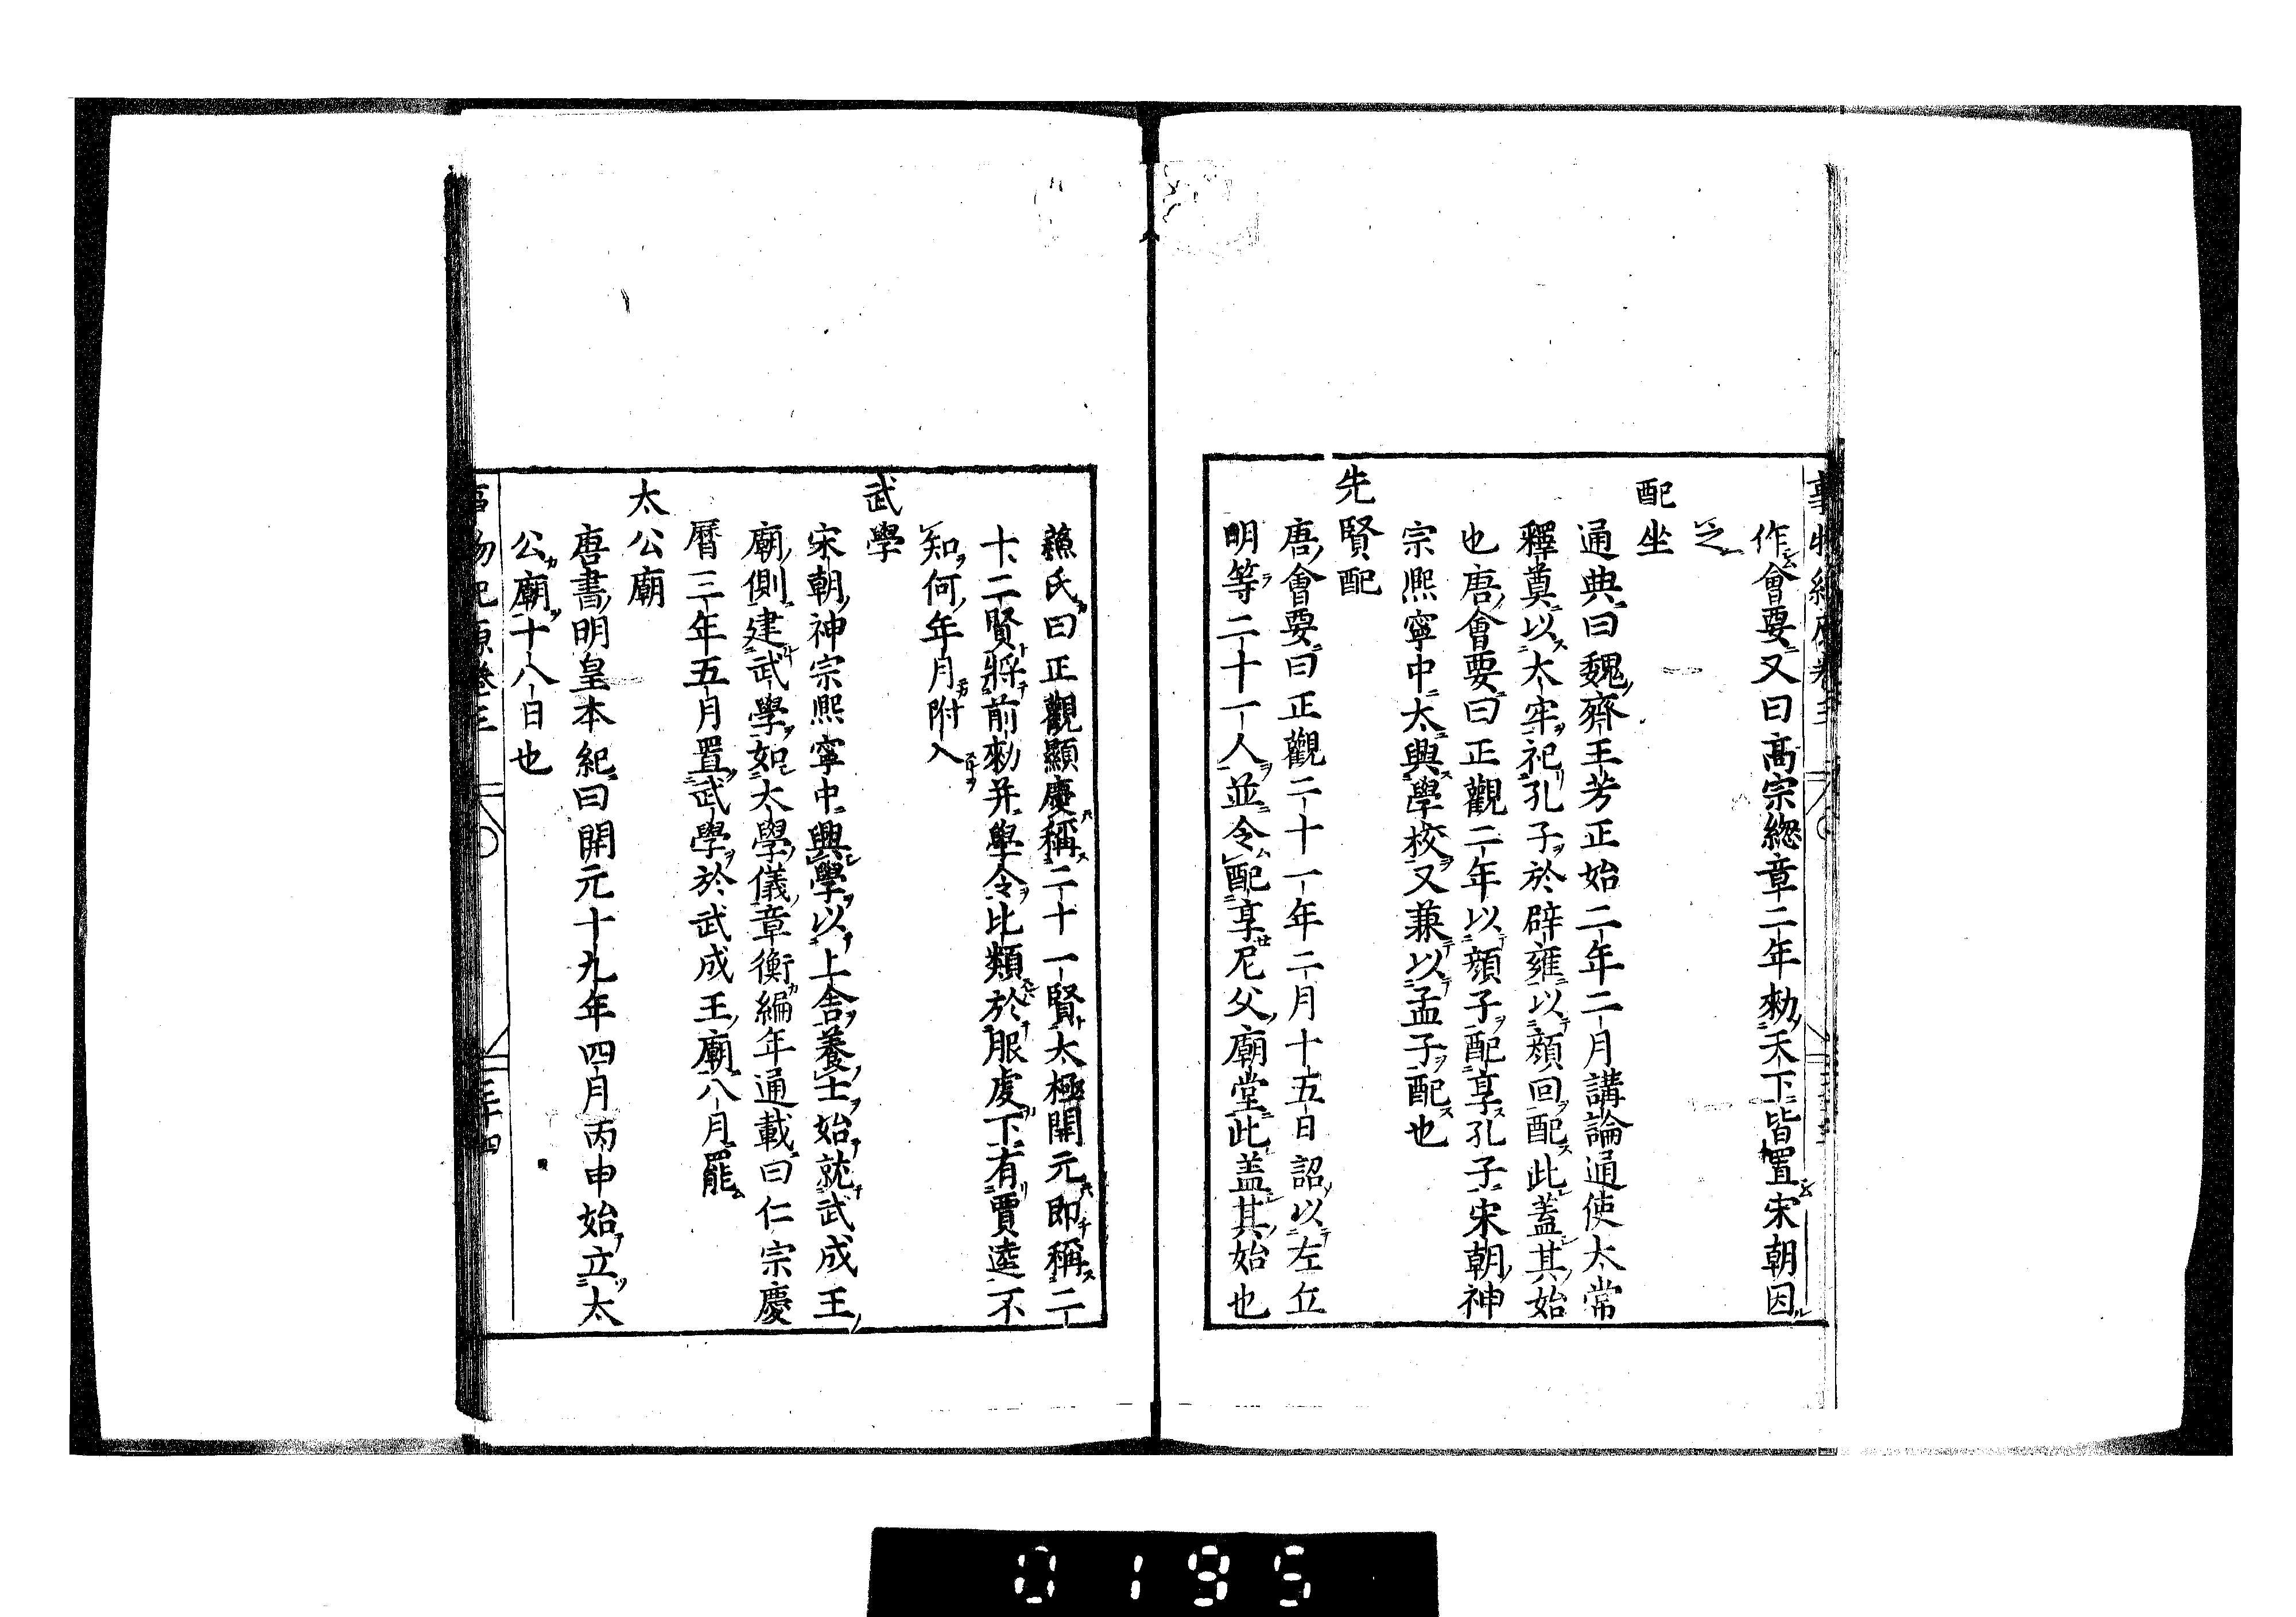 作會要又曰高宗總章二年勑天下皆置宋朝因
之
配坐
通典曰魏齊王芳正始二年二月講論通使太常
釋奠以太牢祀孔子於辟雍以顔回配此蓋其始
也唐會要曰正觀二年以顔子配享孔子宋朝神
宗熈寧中太興學校又兼以孟子配也
先賢配
唐會要曰正觀二十一年二月十五日詔以左丘
明等二十一人並令配享尼父廟堂此盖其始也
蘓氏曰正觀顯慶稱二十一賢太極開元即稱二
十二賢將前勑并學令比類於服虔下有賈逵不
知何年月附入
武學
宋朝神宗熈寧中興學以上舎養士始就武成王
廟側建武學如太學儀章衡編年通載曰仁宗慶
曆三年五月置武學於武成王廟八月罷
太公廟
唐書明皇本紀曰開元十九年四月丙申始立太
公廟十八日也
事物紀原卷三
三十四
0195